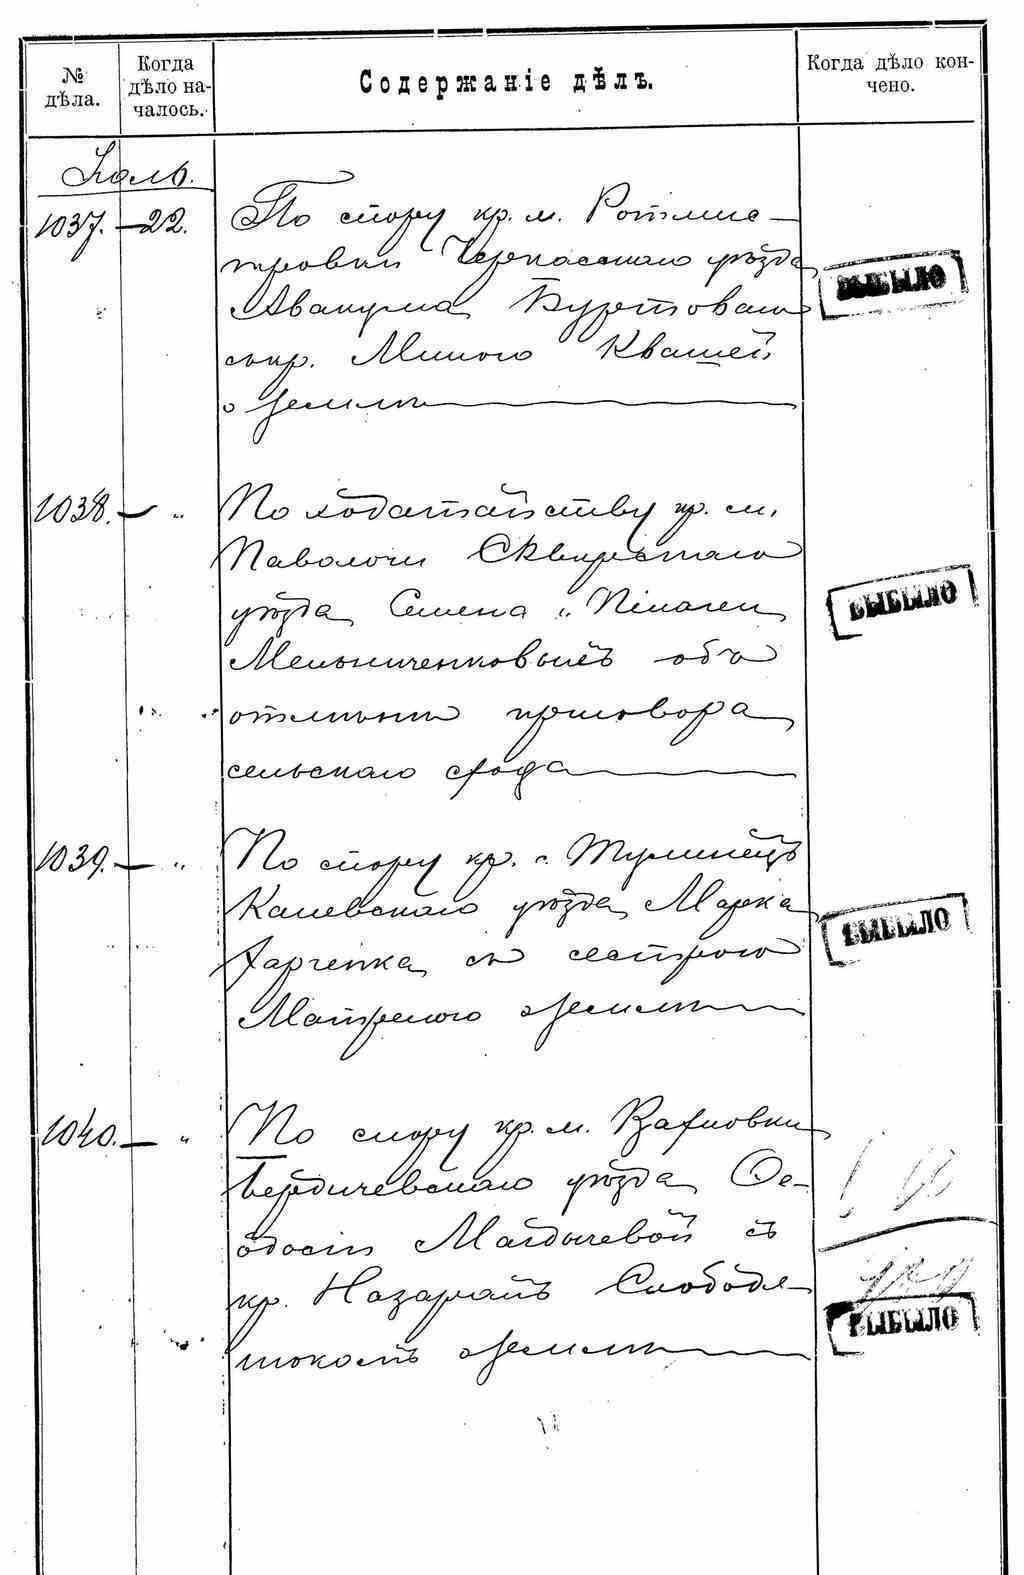 № дѣла.
Когда дѣло на-
чалось.
Содержаніе дѣлъ.
Когда дѣло кон-
чено.
Іюль.
1037. — 22. По спору кр. м. Ротмис-
тровки Черкасскаго уѣзда
Авакума Буртоваго
съ кр. Миною Квашей
о землѣ
ВЫБЫЛО
1038. — „ По ходатайству кр. м.
Паволочи Сквирскаго
уѣзда Семена и Пелагеи
Мельниченковыхъ объ
отмѣнѣ приговора
сельскаго схода
ВЫБЫЛО
1039. — „ По спору кр. с. Тулинецъ
Каневскаго уѣзда Марка
Харченка съ сестрою
Матреною о землѣ
ВЫБЫЛО
1040. — „ По спору кр. м. Вахновки
Бердичевскаго уѣзда Ѳе-
одосіи Магдычевой съ
кр. Назаромъ Слободя-
нюкомъ о землѣ
ВЫБЫЛО